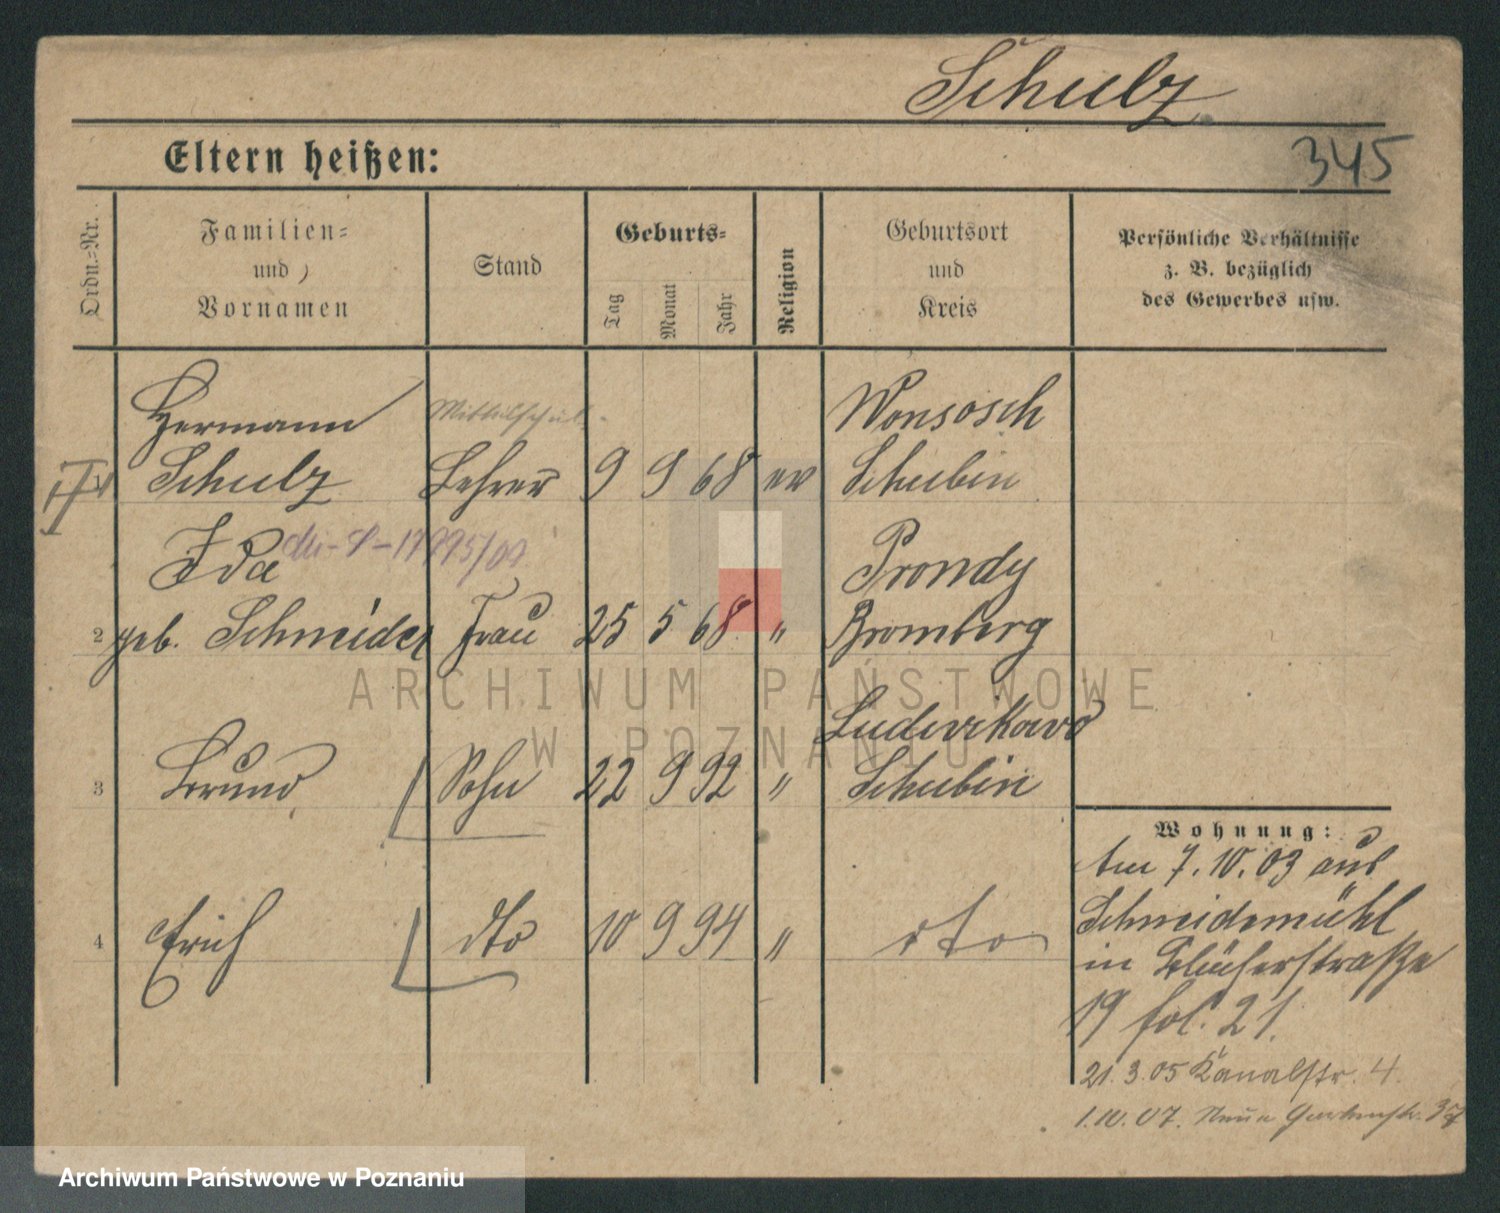 Schulz
345
Eltern heißen:
Ordn.-Nr.
Familien-
und
Vornamen
Stand
Geburts-
Tag
Monat
Jahr
Religion
Geburtsort
und
Kreis
Persönliche Verhältnisse
z. B. bezüglich
des Gewerbes usw.
Hermann Mittelschul- Wonsosch
1 Schulz Lehrer 9 9 68 ev Schubin
Ida Prondy
2 geb. Schneider Frau 25 5 68 " Bromberg
Ludwikowo
3 Bruno Sohn 22 9 92 " Schubin
4 Erich dto 10 9 94 " dto
Wohnung:
Am 7.10.03 aus
Schneidemühl
in Blücherstraße
19 fol. 21.
21.3.05 Kanalstr. 4.
1.10.07. Neue Gartenstr. 37
ARCHIWUM PAŃSTWOWE
W POZNANIU
Archiwum Państwowe w Poznaniu